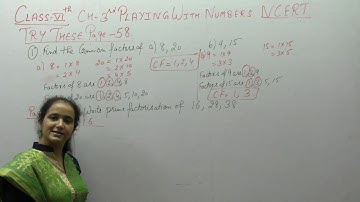 CLASS-VIth CH-3rd PLAYING WITH NUMBERS NCERT
TRY THESE Page-58
① Find the Common factors of a) 8, 20 b) 9, 15
a) 8 = 1 × 8
= 2 × 4
20 = 1 × 20
= 2 × 10
= 4 × 5
CF = 1, 2, 4
9 = 1 × 9
= 3 × 3
15 = 1 × 15
= 3 × 5
Factors of 8 are 1, 2, 4, 8
Factors of 20 are 1, 2, 4, 5, 10, 20
Factors of 9 are 1, 3, 9
Factors of 15 are 1, 3, 5, 15
CF = 1, 3
Write prime factorisation of 16, 28, 38